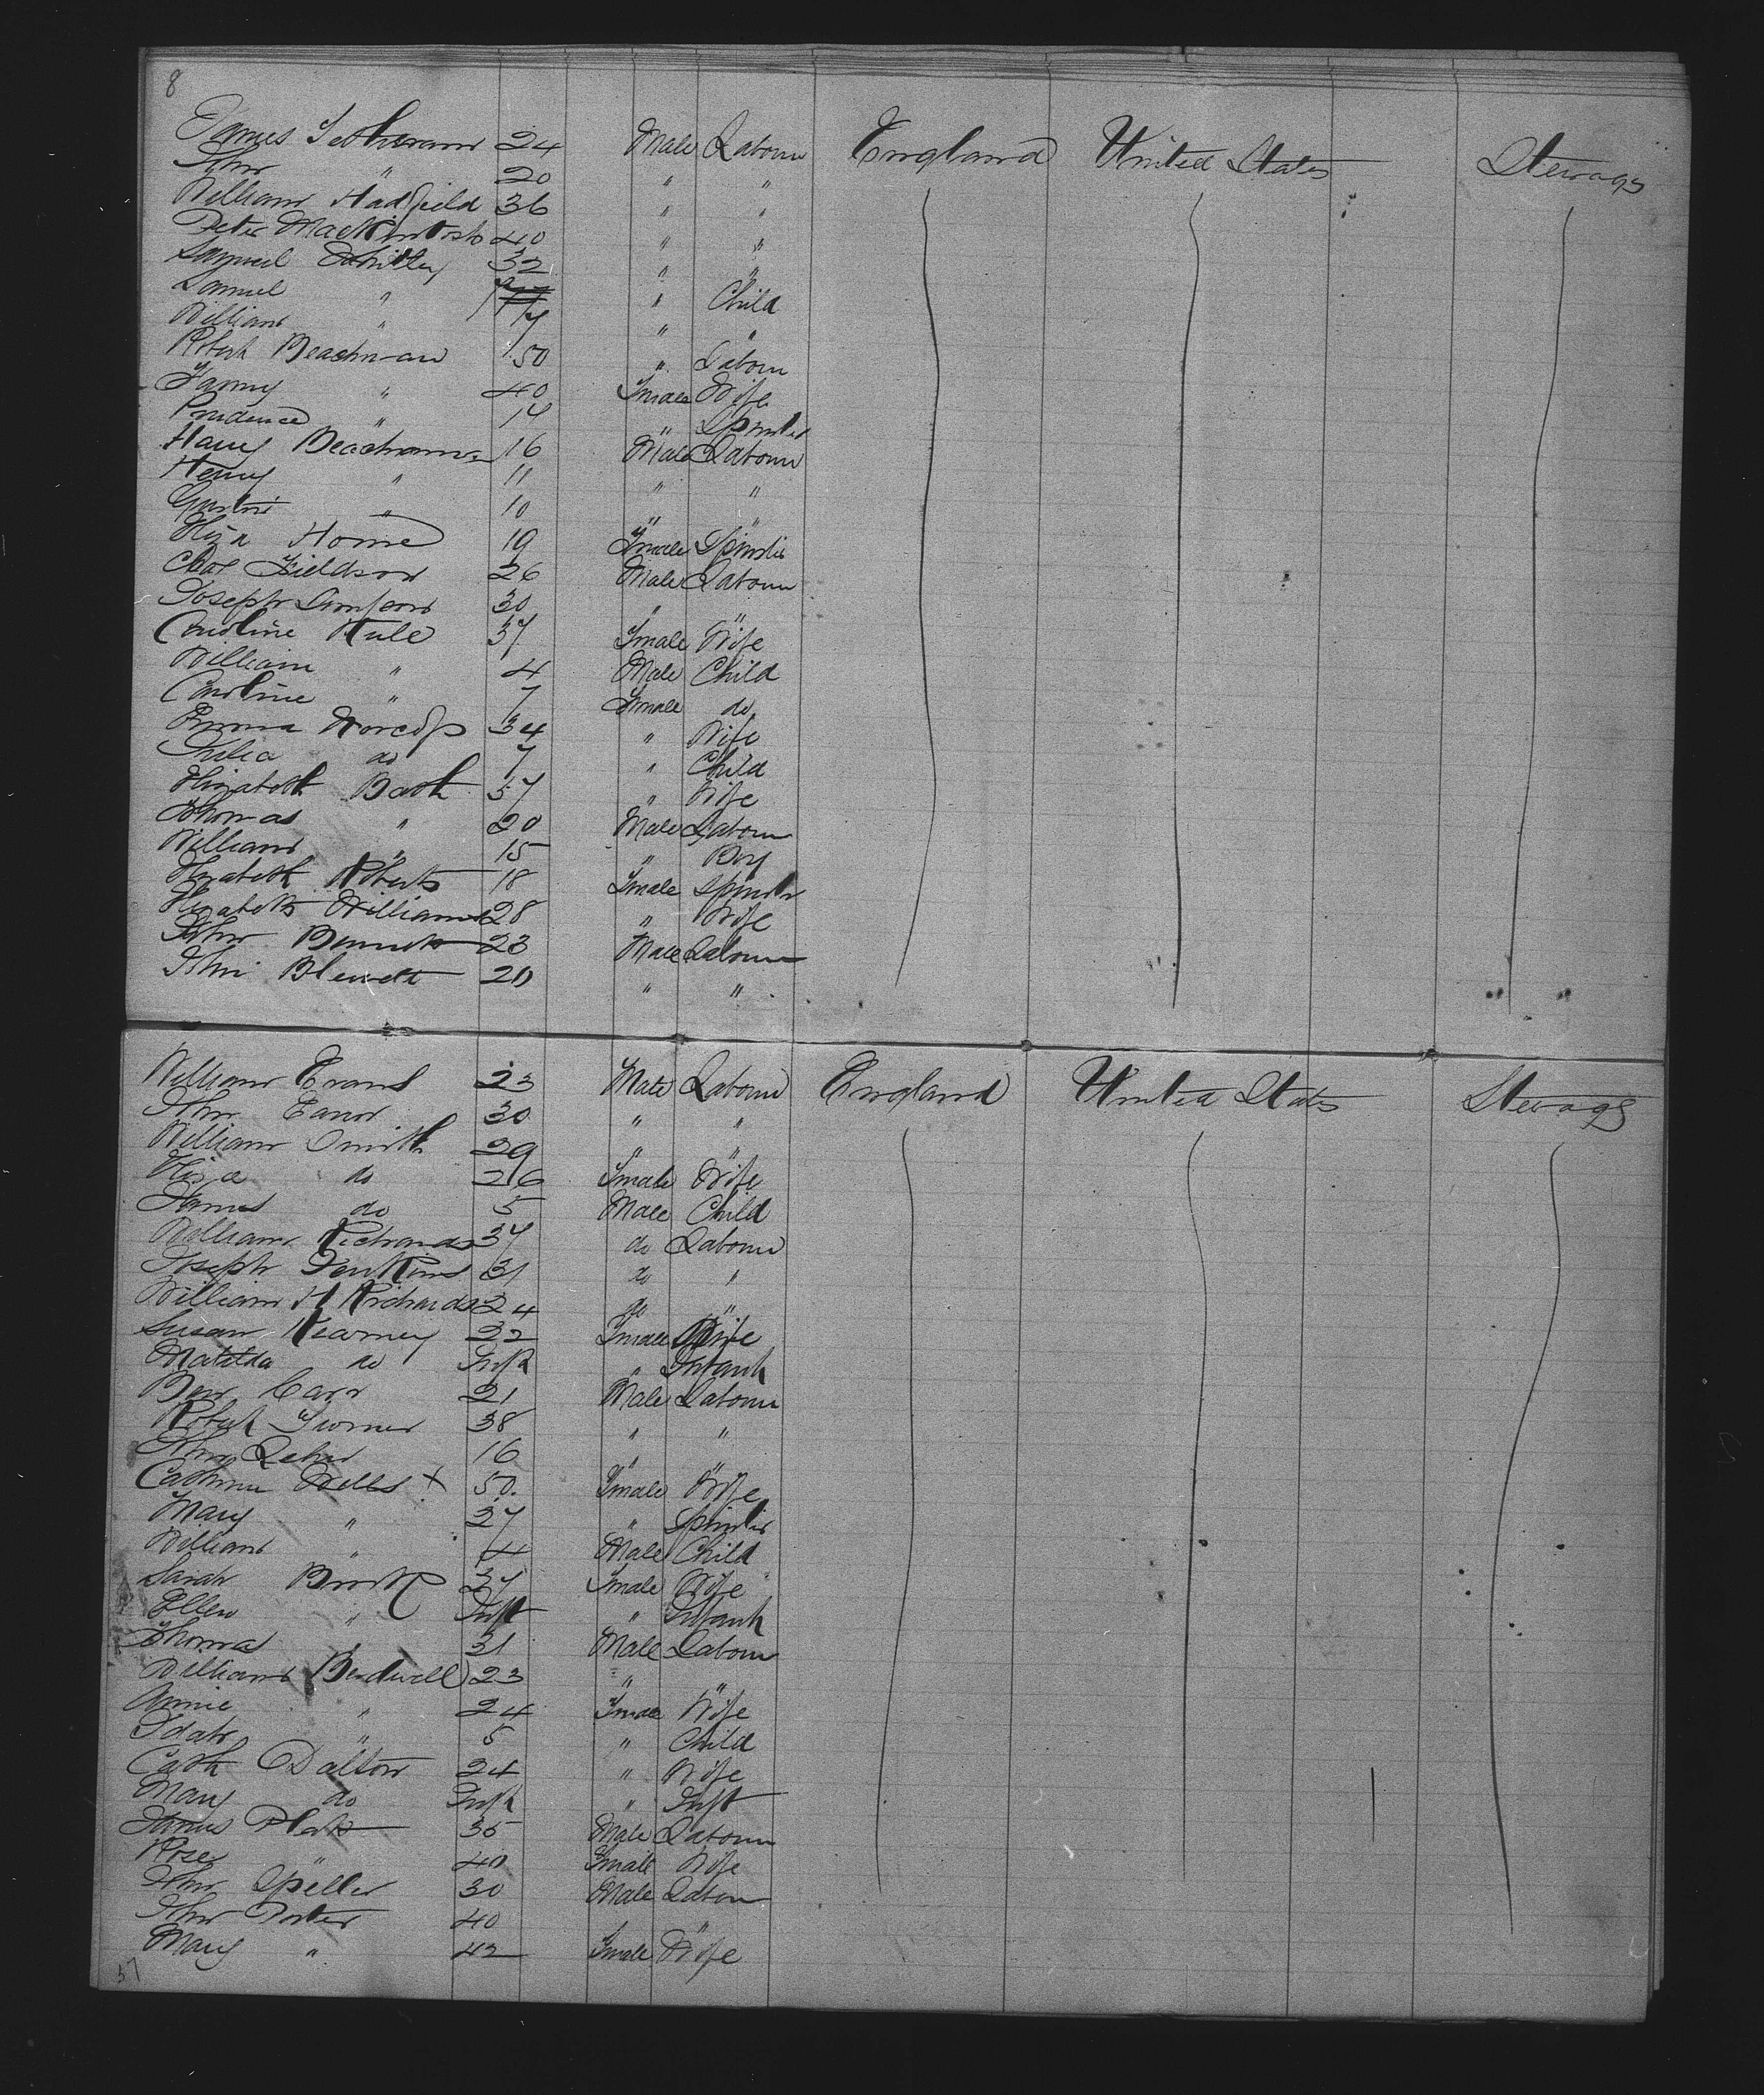 8
James 24 Male Labour England United States Steerage
John " 20 " "
William Hadfield 36 " "
Peter MacKintosh 40 " "
Samuel Whitley 32 " "
Samuel " " Child
William " 7 " "
Robert Beachman 50 " Labour
Fanny " 40 Female Wife
Prudence " 14 " Spinster
Harry Beachman 16 Male Labour
Henry " 11 " "
" 10 " "
Eliza Horne 19 Female Spinster
Chas Fieldson 26 Male Labour
Joseph Simpson 30 " "
Caroline Hule 37 Female Wife
William " 4 Male Child
Caroline " 7 Female do
Emma 34 " Wife
Julia do 7 " Child
Elizabeth Bath 57 " Wife
Thomas " 20 Male Labour
William " 15 " Boy
Elizabeth Roberts 18 Female Spinster
Elizabeth Williams 28 " Wife
John Bennett 23 Male Labour
John Blewett 20 " "
William Evans 23 Male Labour England United States Steerage
John 30 " "
William Smith 29 " "
Eliza do 26 Female Wife
James do 5 Male Child
William Richards 37 do Labour
Joseph Jenkins 31 do "
William H Richards 24 do "
Susan Kearney 22 Female Wife
Matilda do Inft " Infant
Ben Carr 21 Male Labour
Robert Turner 38 " "
John 16 " "
Catherine Wells x 50. Female Wife
Mary " 27 " Spinster
William " 4 Male Child
Sarah Brook 27 Female Wife
Ellen " Inft " Infant
Thomas 31 Male Labour
William Bardwell 23 " "
Annie " 24 Female Wife
Idah " 5 " Child
Cath Dalton 24 " Wife
Mary do Inft " Inft
James Platt 35 Male Labour
Rose " 40 Female Wife
John Speller 30 Male Labour
John Porter 40 " "
Mary " 42 Female Wife
57